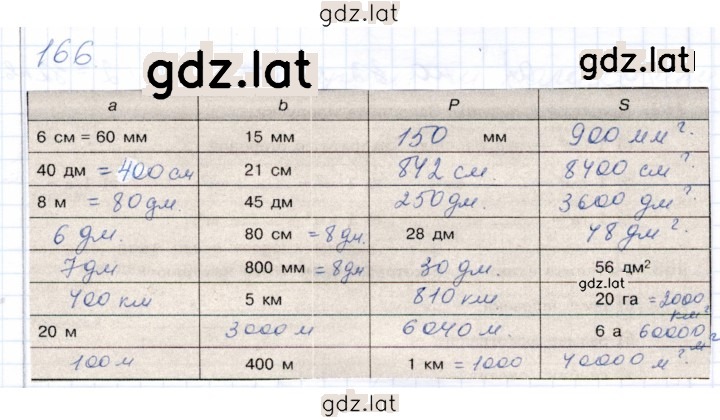 gdz.lat
166
gdz.lat
gdz.lat
a b P S
6 см = 60 мм 15 мм 150 мм 900 мм²
40 дм = 400 см 21 см 842 см. 8400 см²
8 м = 80 дм. 45 дм 250 дм. 3600 дм²
6 дм. 80 см = 8 дм. 28 дм 48 дм²
7 дм 800 мм = 8 дм 30 дм. 56 дм²
gdz.lat
400 км 5 км 810 км. 20 га = 2000 км²
20 м 3000 м 6040 м. 6 а 60000 м²
100 м 400 м 1 км = 1000 40000 м²
gdz.lat